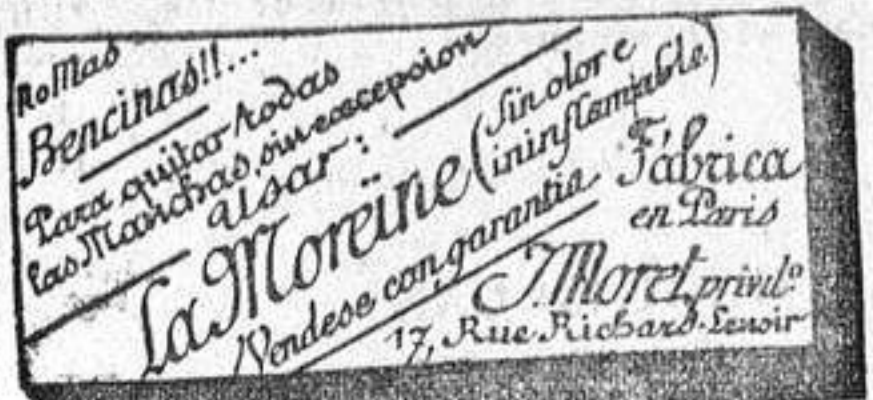 No Mas
Bencinas!!...
Para quitar todas
las Manchas, sin excepsion
Usar:
La Moreïne (Sin olor e
ininflamable)
Vendese con garantia
Fábrica
en Paris
J. Moret, privil.º
17, Rue Richard-Lenoir